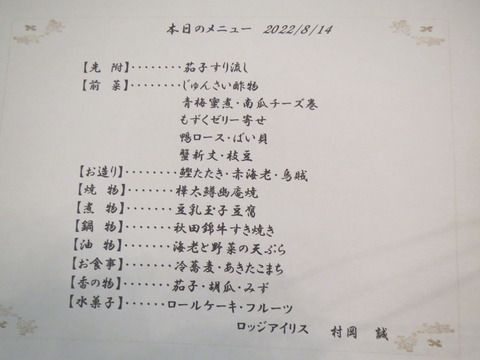 本日のメニュー 2022/8/14
【先 附】········茄子すり流し
【前 菜】········じゅんさい酢物
青梅蜜煮・南瓜チーズ巻
もずくゼリー寄せ
鴨ロース・ばい貝
蟹新丈・枝豆
【お造り】·······鰹たたき・赤海老・烏賊
【焼 物】·······樺太鱒幽庵焼
【煮 物】·······豆乳玉子豆腐
【鍋 物】·······秋田錦牛すき焼き
【油 物】·······海老と野菜の天ぷら
【お食事】·······冷蕎麦・あきたこまち
【香の物】·······茄子・胡瓜・みず
【水菓子】·······ロールケーキ・フルーツ
ロッジアイリス 村岡 誠